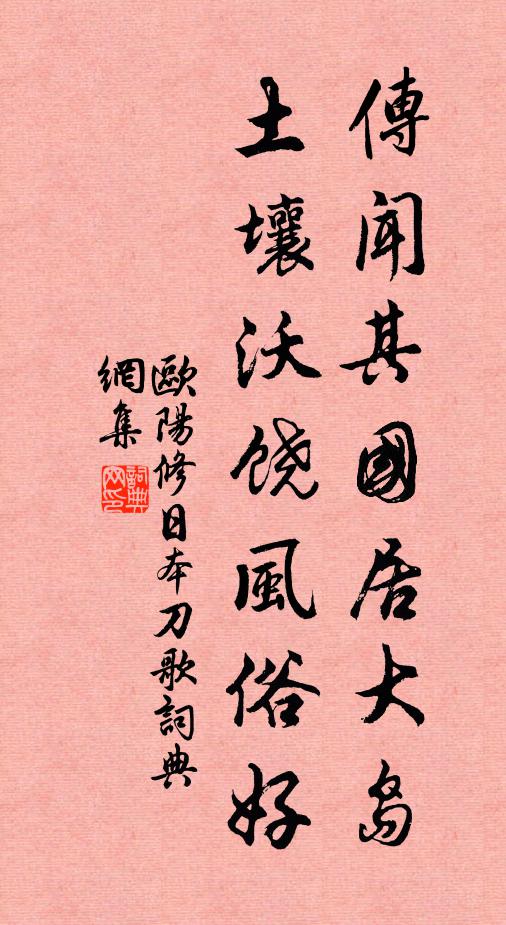 傳聞其國居大岛
土壤沃饶風俗好
歐陽修日本刀歌詞典
網集
詞典
网印